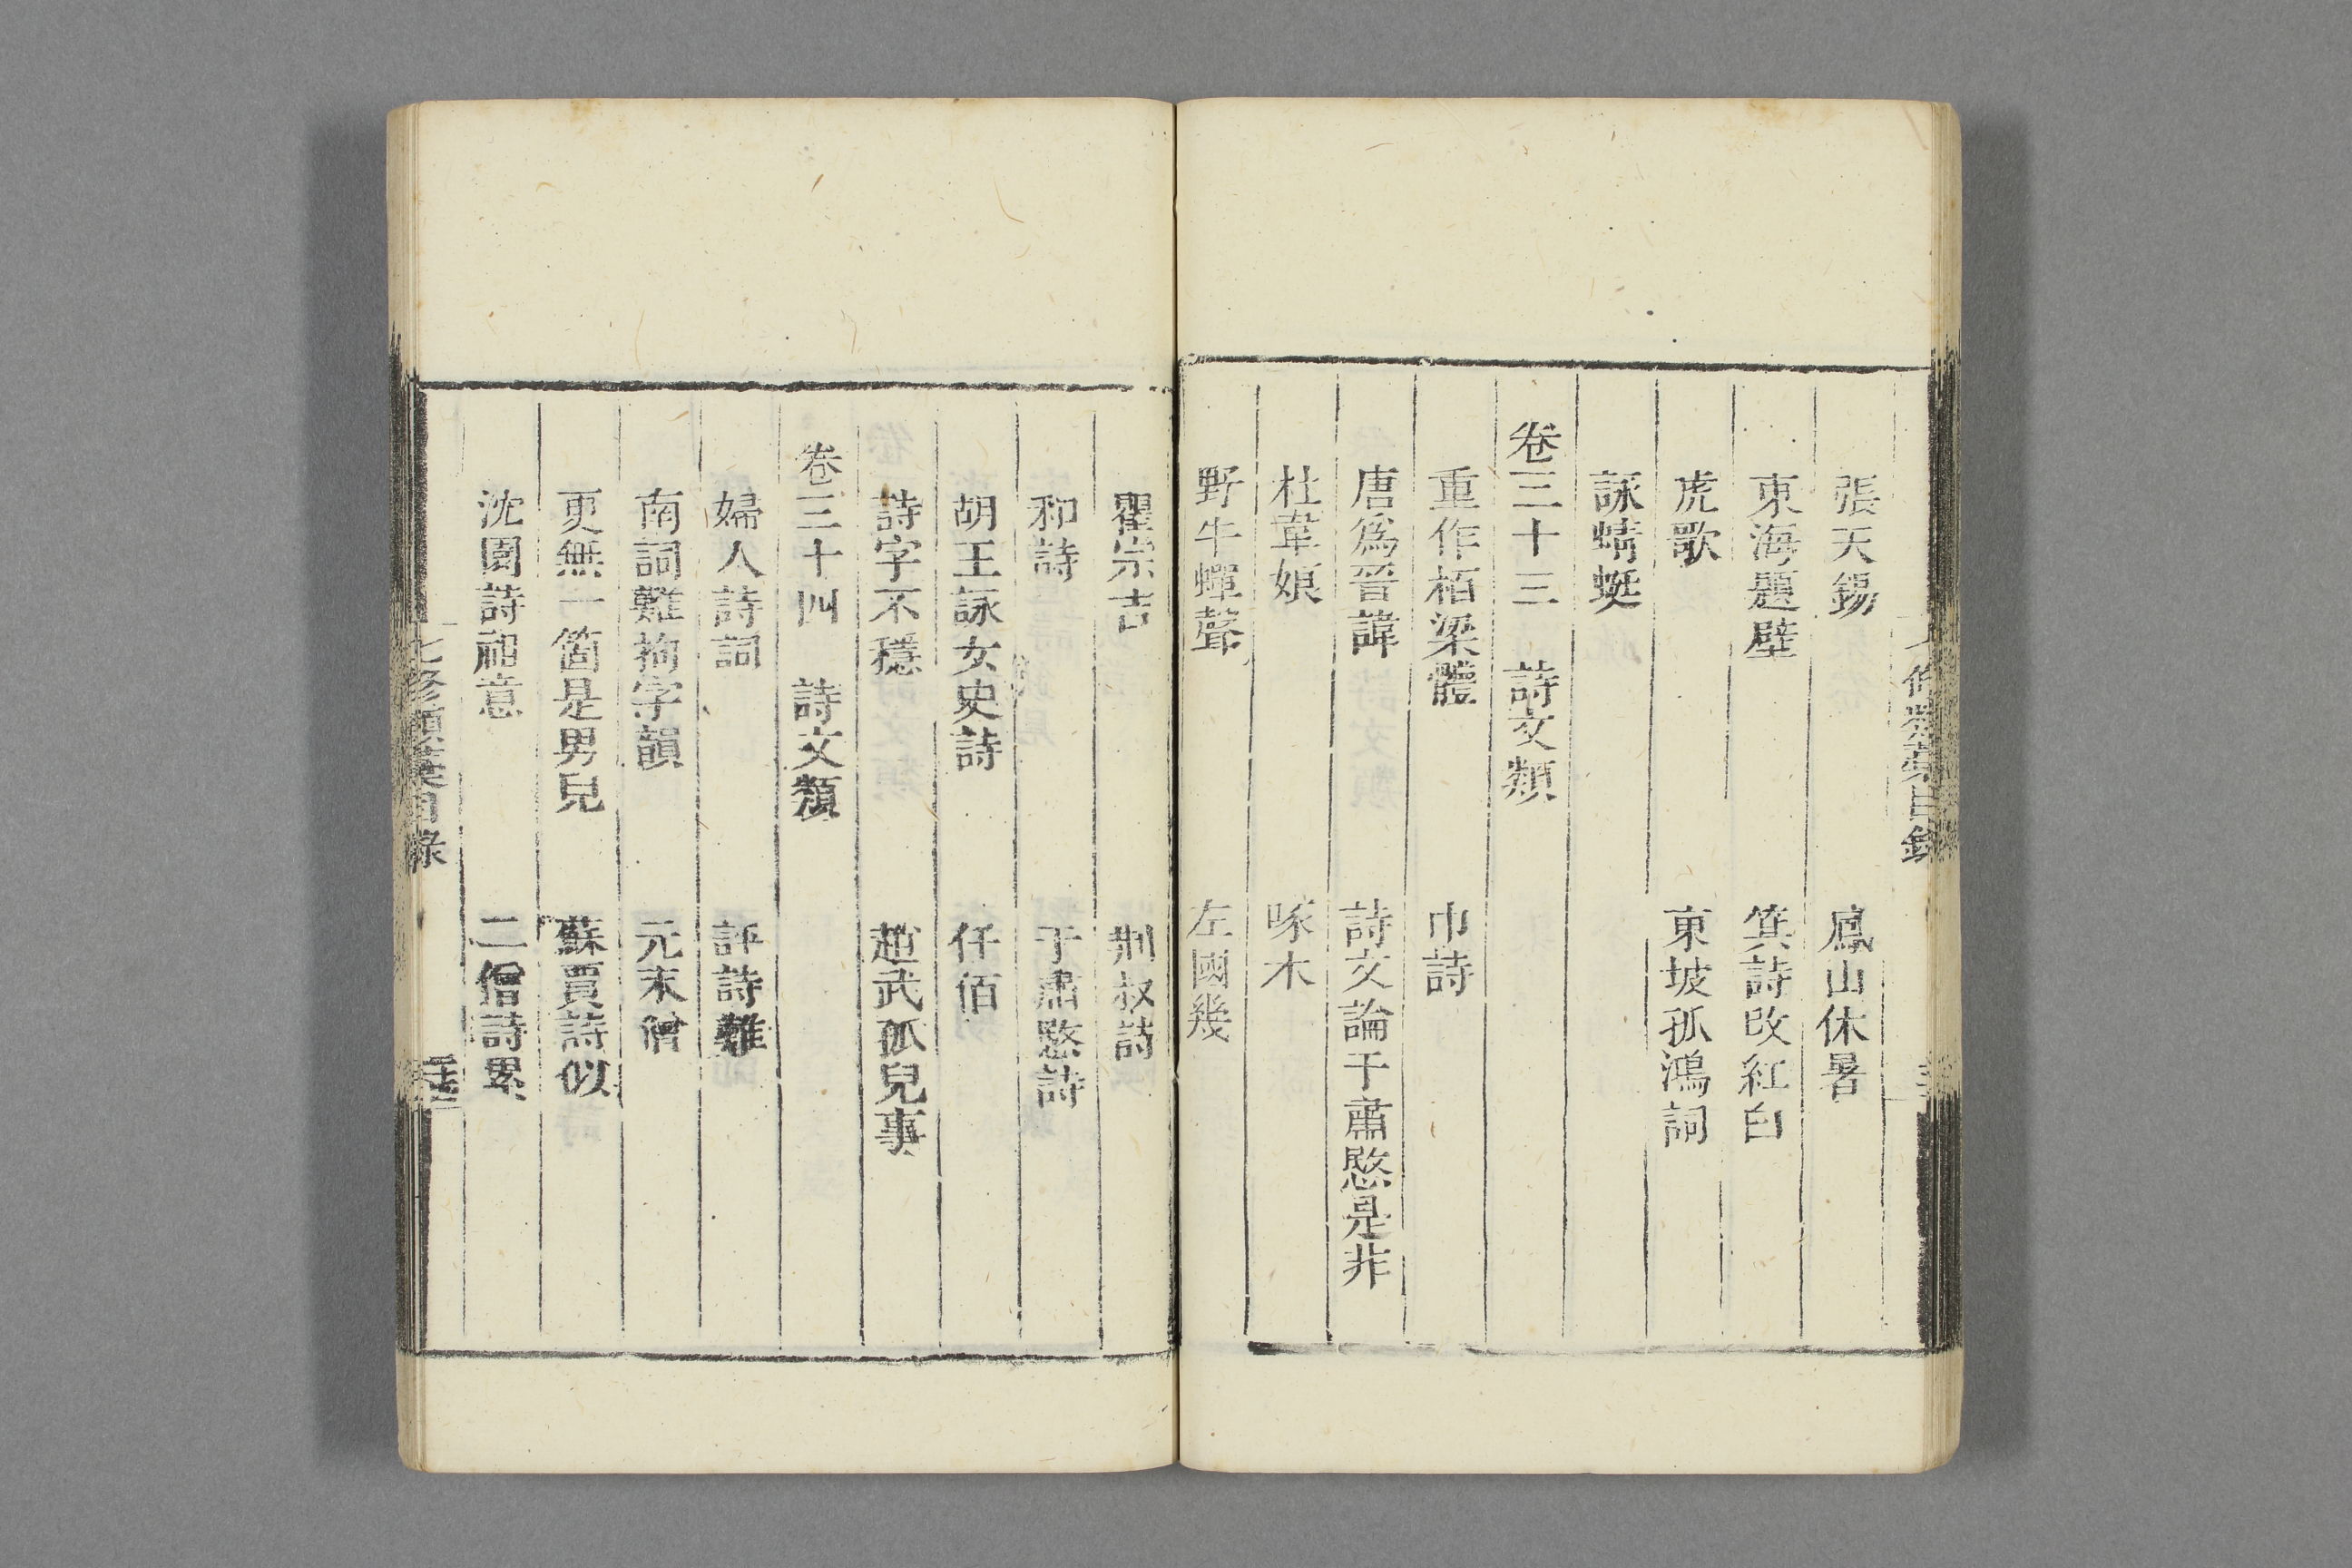 張天錫　鳳山休暑
東海題壁　箕詩改紅白
虎歌　東坡孤鴻詞
詠蜻蜓
卷三十三　詩文類
重作栢梁體　巾詩
唐爲晉諱　詩文論于肅愍是非
杜韋娘　啄木
野牛蟬聲　左國幾
瞿宗吉　荆叔詩
和詩　于肅愍詩
胡王詠女史詩　仟佰
詩字不穩　趙武孤兒事
卷三十四　詩文類
婦人詩詞　評詩難
南詞難拘字韻　元末僧
更無一箇是男兒　蘇賈詩似
沈園詩祖意　二僧詩累
七修類藁目錄